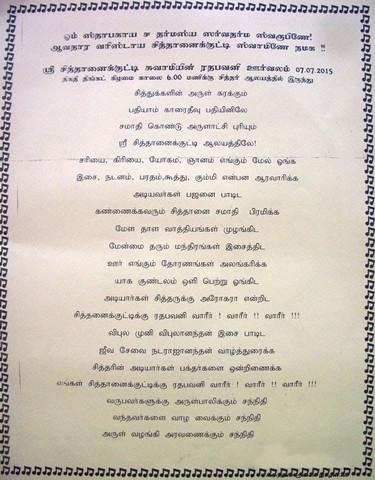 ஓம் ஸ்தாபகாய ச தர்மஸ்ய ஸர்வதர்ம ஸ்வரூபிணே!
அவதார வரிஸ்டாய சித்தானைக்குட்டி ஸ்வாமிணே நமக !!
ஸ்ரீ சித்தானைக்குட்டி சுவாமியின் ரதபவனி ஊர்வலம் 07.07.2015
திகதி திங்கட் கிழமை காலை 6.00 மணிக்கு சித்தர் ஆலயத்தில் இருந்து
சித்துக்களின் அருள் சுரக்கும்
பதியாம் காரைதீவு பதியினிலே
சமாதி கொண்டு அருளாட்சி புரியும்
ஸ்ரீ சித்தானைக்குட்டி ஆலயத்திலே!
சரியை, கிரியை, யோகம், ஞானம் எங்கும் மேல் ஓங்க
இசை, நடனம், பரதம்,கூத்து, கும்மி என்பன ஆரவாரிக்க
அடியவர்கள் பஜனை பாடிட
கண்ணைக்கவரும் சித்தானை சமாதி பிரமிக்க
மேள தாள வாத்தியங்கள் முழங்கிட
மேன்மை தரும் மந்திரங்கள் இசைத்திட
ஊர் எங்கும் தோரணங்கள் அலங்கரிக்க
யாக குண்டலம் ஒளி பெற்று ஓங்கிட
அடியார்கள் சித்தருக்கு அரோகரா என்றிட
சித்தனைக்குட்டிக்கு ரதபவனி வாரீர் ! வாரீர் !! வாரீர் !!!
விபுல முனி விபுலானந்தன் இசை பாடிட
ஜீவ சேவை நடராஜானந்தன் வாழ்த்துரைக்க
சித்தரின் அடியார்கள் பக்தர்களை ஒன்றிணைக்க
எங்கள் சித்தானைக்குட்டிக்கு ரதபவனி வாரீர் ! வாரீர் !! வாரீர் !!!
வருபவர்களுக்கு அருள்பாலிக்கும் சந்நிதி
வந்தவர்களை வாழ வைக்கும் சந்நிதி
அருள் வழங்கி அரவணைக்கும் சந்நிதி